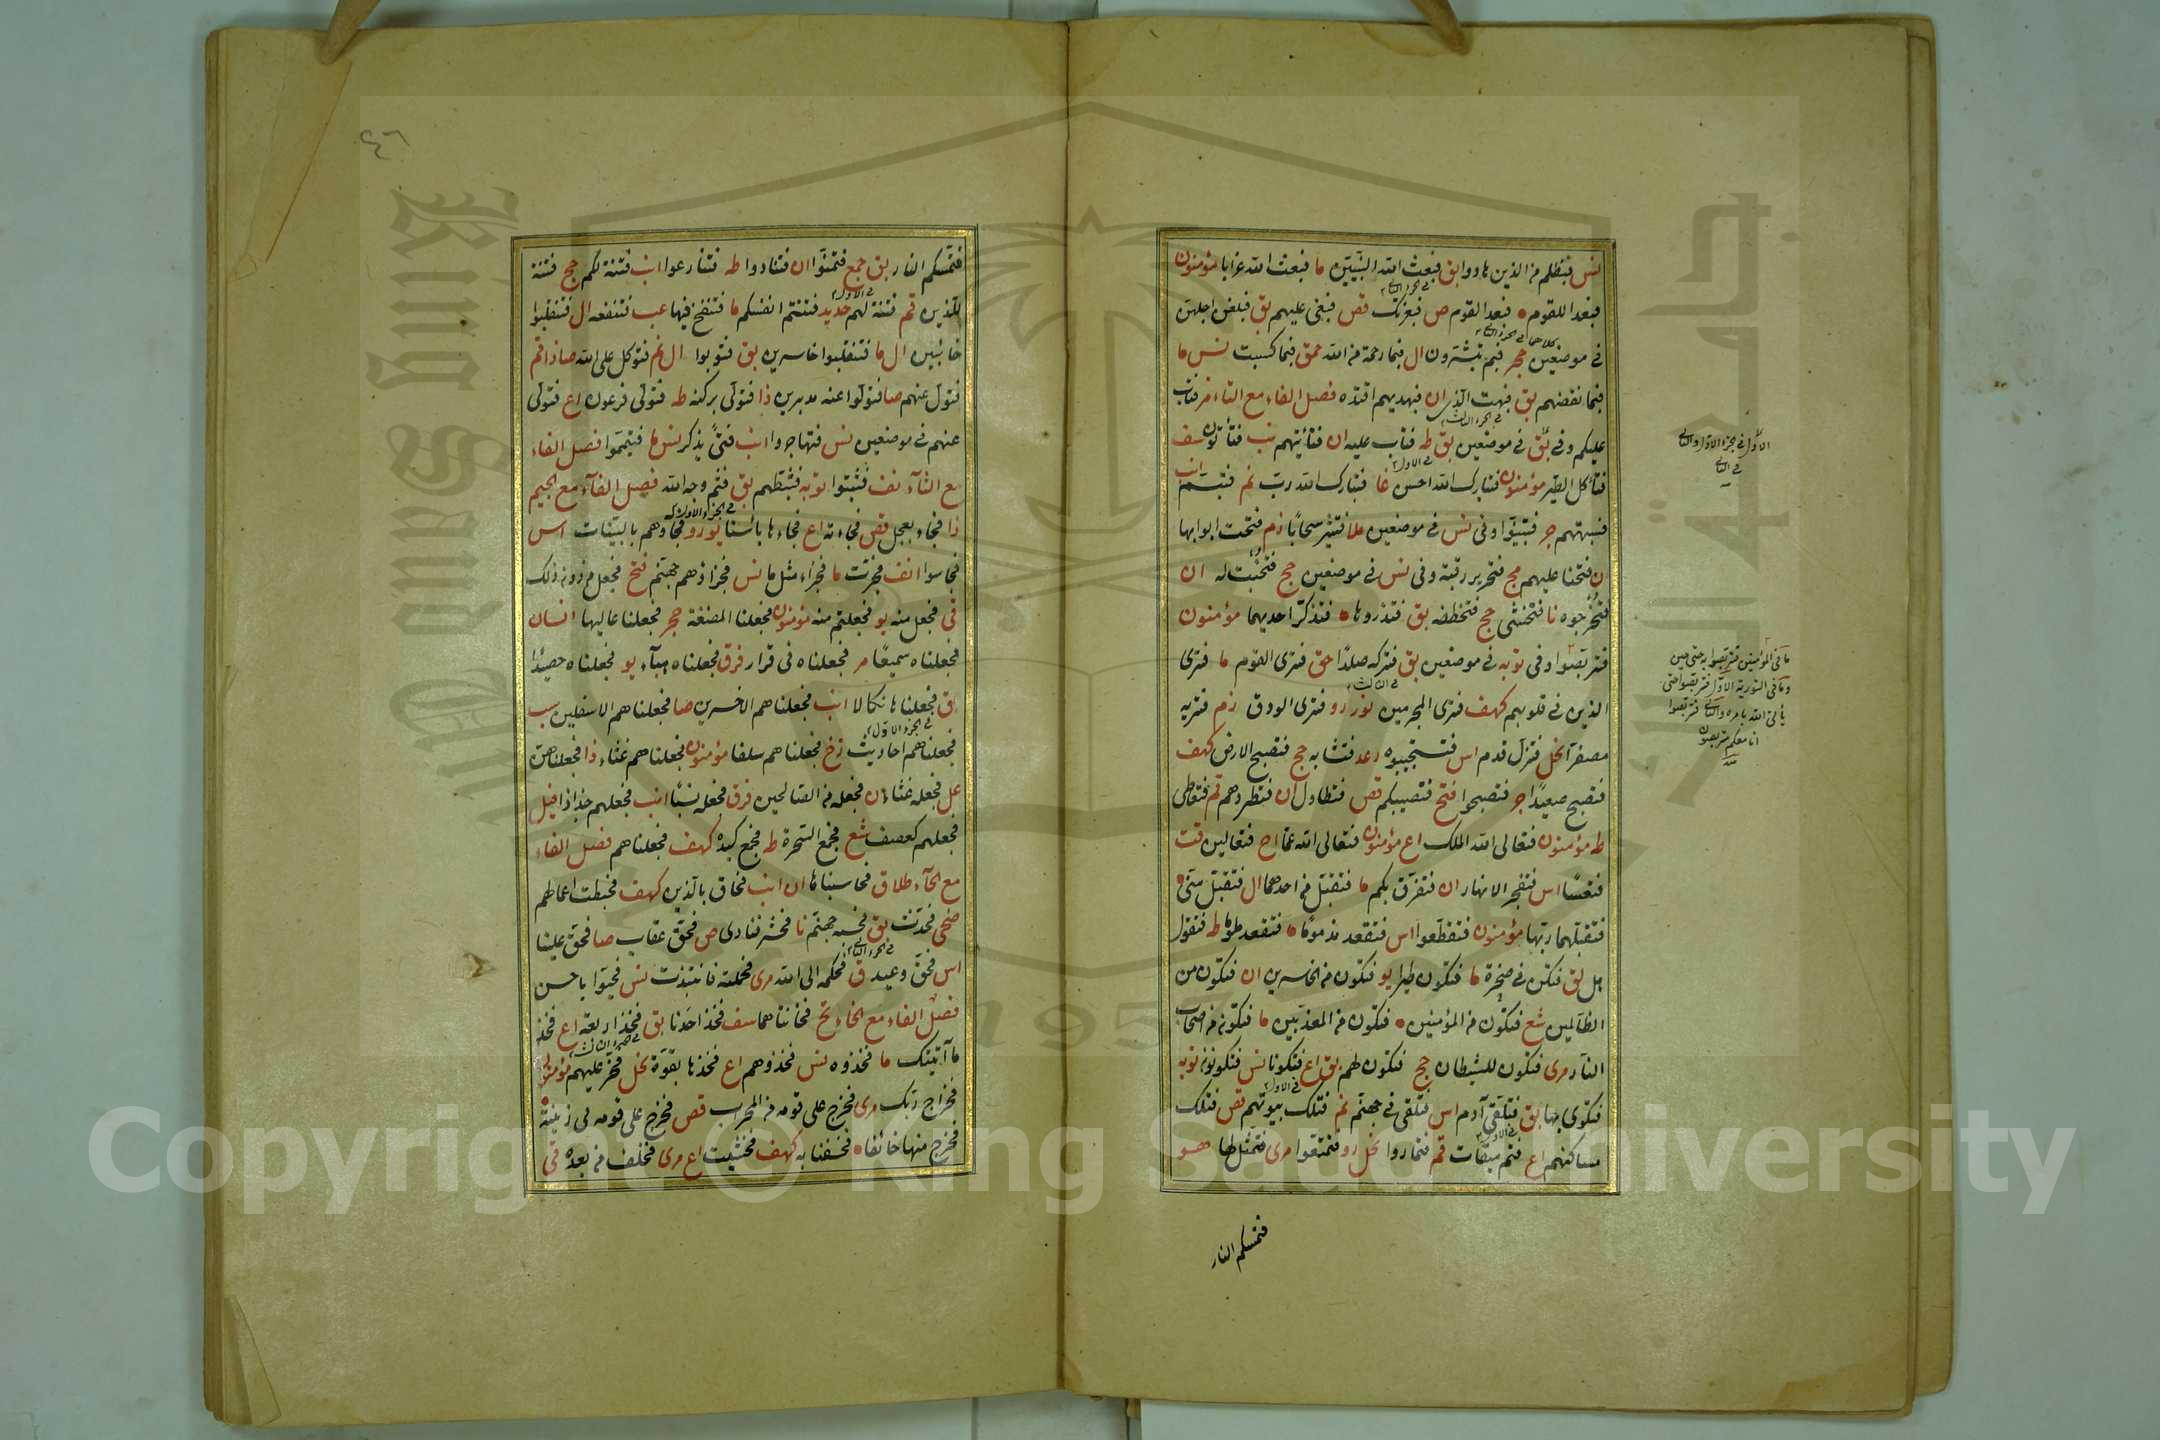 نس فبظلم من الذين هادوا بق فبعث الله النبيين ما فبعث الله غرابا مؤمنون
فبعدا للقوم فبعدا لقوم ص فبعزتك قص فبغى عليهم بق فبلغن اجلهن
في موضعين حجر فبم تبشرون ال فبما رحمة من الله حمق فبما كسبت نس ما
فبما نقضهم بق فبهت الذي ان فبهديهم اقتده فصل الفاء مع التاء مر فتاب
عليكم وفي بق في موضعين بق طه فتاب عليه ان فتأتيهم نب فتأتون سف
فتأكل الطير مؤمنون فتبارك الله احسن غا فتبارك الله رب نم فتبسم انب
فتبهتهم جر فتبينوا وفي نس في موضعين ملا فتثير سحابا زم فتحت ابوابها
ان فتحنا عليهم حج فتحرير رقبة وفي نس في موضعين حج فتخبت له ان
فتخرجوه نا فتخشى حج فتخطفه بق فتذروها فتذكر احديهما مؤمنون
فتربصوا وفي توبه في موضعين بق فتركه صلدا حق فترى القوم ما فترى
الذين في قلوبهم كهف فترى المجرمين نور رو فترى الودق زم فتريه
مصفرا نحل فتزل قدم اس فتستجيبوه رعد فتشابه حج فتصبح الارض كهف
فتصبح صعيدا جر فتصبحوا فتح فتصيبكم قص فتطاول ان فتطردهم قم فتعاطى
طه مؤمنون فتعالى الله الملك اع مؤمنون فتعالى الله عما اح فتعالين قت
فتعسا اس فتفجر الانهار ان فتفرق بكم ما فتقبل من احدهما ال فتقبل مني
فتقبلها ربها مؤمنون فتقطعوا اس فتقعد مذموما فتقعد ملوما ط فتقول
هل لق فتكن في صخرة ما فتكون طيرا يو فتكون من الخاسرين ان فتكون من
الظالمين شع فتكون من المؤمنين فتكون من المعذبين ما فتكون من اصحاب
النار مرى فتكون للشيطان حج فتكون لهم بق اع فتكونا نس فتكونون توبه
فتكوى بها بق فتلقى آدم اس فتلقى في جهنم نم فتلك بيوتهم قص فتلك
مساكنهم اع فتم ميقات قم فتماروا نحل رو فتمتعوا مرى فتمثل لها هو
فتمسكم النار
الاول في جزء الاول والثاني
في الثاني
ما في المؤمنين فتربصوا به حتى حين
وما في التوبة الاول فتربصوا حتى
يأتي الله بامره والثاني فتربصوا
انا معكم متربصون
٤٦
فتمسكم النار بق جمع فتمنوا ان فتنادوا طه فتنازعوا انب فتنة لكم حج فتنة
للذين قم فتنة لهم حديد فتنتم انفسكم ما فتنفخ فيها عب فتنفعه ال فتنقلبوا
خائبين ال ما فتنقلبوا خاسرين بق فتوبوا ال نم فتوكل على الله صا ذا قم
فتول عنهم صا فتولوا عنه مدبرين ذا فتولى بركنه طه فتولى فرعون اع فتولى
عنهم في موضعين نس فتهاجروا انب فتى يذكر نس ما فتيمموا فصل الفاء
مع الثاء نف فثبتوا توبه فثبطهم بق فثم وجه الله فصل الفاء مع الجيم
ذا فجاء بعجل قص فجاءته اع فجاءها بأسنا يو رو فجاءوهم بالبينات اس
فجاسوا انف فجرت ما فجزاء مثل ما نس فجزاؤهم جهنم فتح فجعل من دون ذلك
قى فجعل منه يو فجعلتم منه مؤمنون فجعلنا المضغة حجر فجعلنا عاليها انسان
فجعلناه سميعا مر فجعلناه في قرار فرق فجعلناه هباء يو فجعلناه حصيدا
بق فجعلناها نكالا انب فجعلناهم الاخسرين صا فجعلناهم الاسفلين سب
فجعلناهم احاديث زخ فجعلناهم سلفا مؤمنون فجعلناهم غثاء ذا فجعلناهن
عل فجعله غثاء ن فجعله من الصالحين فرق فجعله نسبا انب فجعلهم جذاذا فيل
فجعلهم كعصف شع فجمع السحرة طه فجمع كيده كهف فجمعناهم فصل الفاء
مع الحاء طلاق فحاسبناها ان انب فحاق بالذين كهف فحبطت اعمالهم
ضحى فحدث بق فحسبه جهنم نا فحشر فنادى ص فحق عقاب صا فحق علينا
اس فحق وعيد ق فحكمه الى الله مرى فحملته فانتبذت نس فحيوا باحسن
فصل الفاء مع الخاء تح فخانتاهما سف فخذ احدنا بق فخذ اربعة اع فخذ
ما آتيتك ما فخذوه نس فخذوهم اع فخذها بقوة نحل فخر عليهم مؤمنون
فخراج ربك مرى فخرج على قومه من المحراب قص فخرج على قومه في زينته
فخرج منها خائفا فخسفنا به كهف فخشيت اع مرى فخلف من بعدهم قى